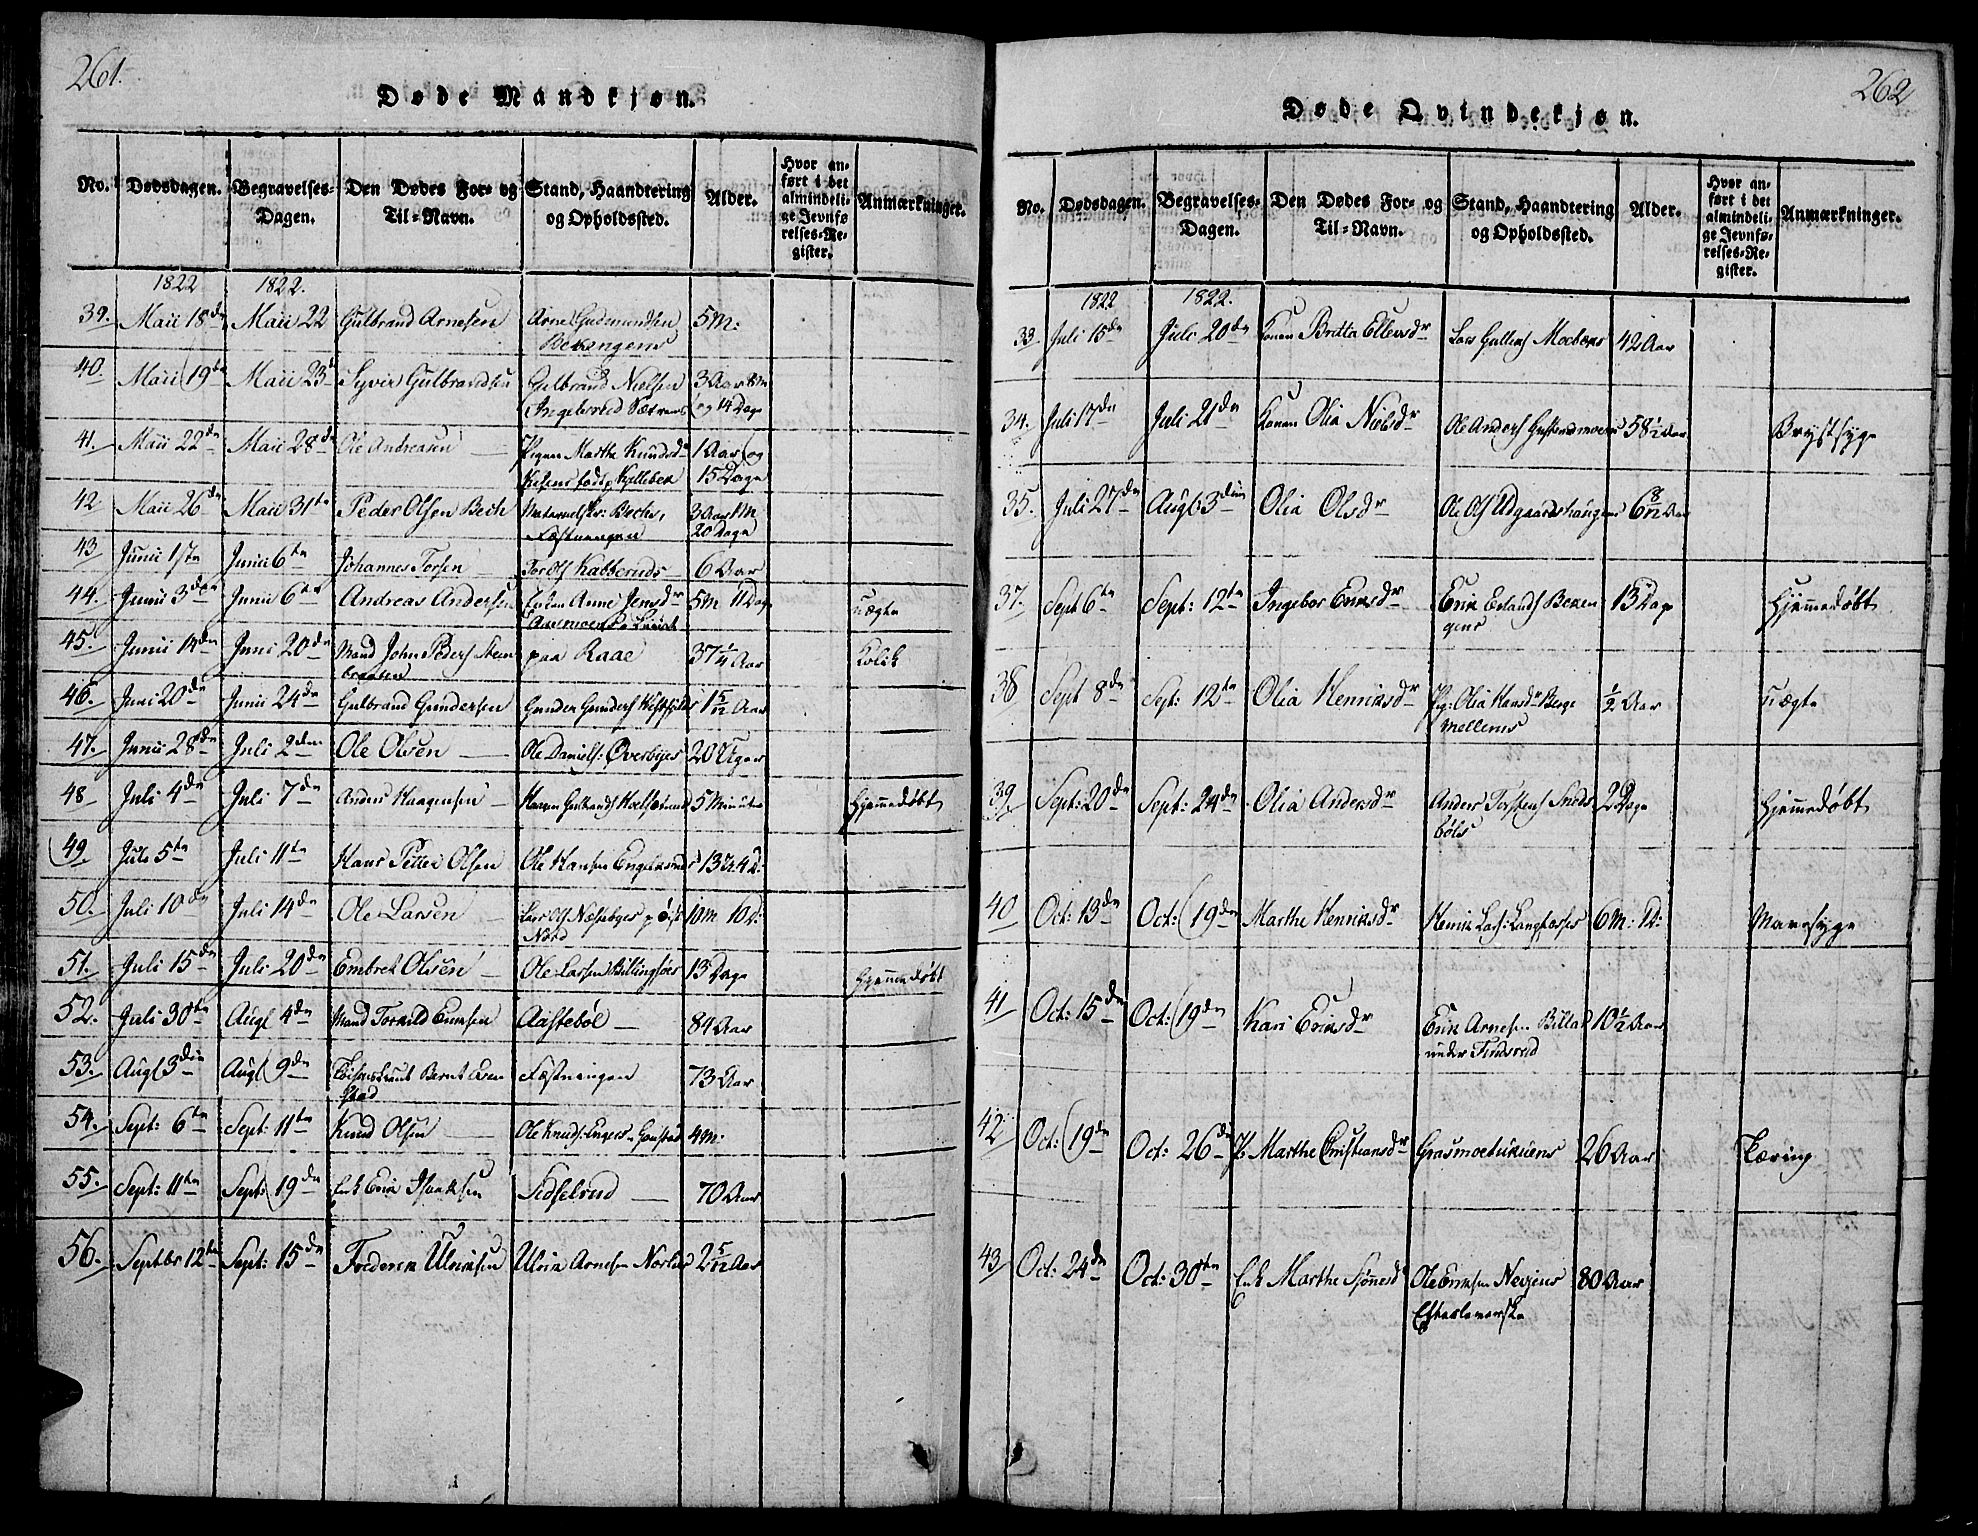 261.
Døde Mandkjøn.
No. Dødsdagen. Begravelses-Dagen. Den Dødes For- og Til-Navn. Stand, Haandtering og Opholdssted. Alder. Hvor anført i det almindelige Jevnførelses-Register. Anmærkninger.
1822 1822.
39. Maii 18de Maii 22 Gulbrand Arnesen Arne Gudmundsen 5 M:
40. Maii 19de Maii 23d Syver Gulbrandsen Gulbrand Nielsen 3 Aar 8 M
og 14 Dage
41. Maii 22de Maii 28de Ole Andreasen Pigen Marthe Knudsdr 1 Aar og
15 Dage
42 Maii 26de Maii 31te Peder Olsen Bech 3 Aar 1 M
Fæstningen 20 Dage
43 Junii 1ste Junii 6te Johannes Torsen Tor Ols Kabberuds 6 Aar
44. Junii 3die Junii 6te Andreas Andersen Anne Jensdr 5 M 11 Dage uægte
45. Junii 14de Juni 20de Mand John Peders Steen paa Raae 37 1/4 Aar Kolik
braaten
46. Juni 20de Junii 24de Gulbrand Gundersen Gunder Gunders 1 5/12 Aar
47. Junii 28de Juli 2den Ole Olsen Ole Daniels: Overbyes 20 Uger
48 Juli 4de Juli 7de Anders Haagensen Haagen Gulbrands 5 Minuter Hjemmedøbt
49. Juli 5te Juli 11te Hans Petter Olsen Ole Hansen 13 U. 4 D:
50. Juli 10de Juli 14de Ole Larsen Lars Ols 10 M 10 D:
Nord
51. Juli 15de Juli 20de Embret Olsen Ole Larsen 13 Dage Hjemmedøbt
52. Juli 30te Augs 4de Mand Torkild Evensen Aastebøl 84 Aar
53. Augs 3die Augs 9de Bernt Fæstningen 73 Aar
54. Sept: 6te Sept: 11te Knud Olsen Ole Knuds: 4 M:
55. Sept: 11te Sept: 19de Enk Erik Isaksen Sedselrud 70 Aar
56. Septbr 12te Sept: 15de Frederik Ulriksen Ulrik Arnesen 2 5/12 Aar
262
Døde Qvindekjøn.
No. Dødsdagen. Begravelses-Dagen. Den Dødes For- og Til-Navn. Stand, Haandtering og Opholdssted. Alder. Hvor anført i det almindelige Jevnførelses-Register. Anmærkninger.
1822 1822.
33 Juli 15de Juli 20de Konen Britta Ellevsdr Lars Gullers Moebæks 42 Aar
34. Juli 17de Juli 21de Konen Olia Nielsdr Ole Anders 58 1/2 Aar Brystsyge
35. Juli 27de Augs: 3die Olia Olsdr Ole Ols Udgaardshaugen 6 8/12 Aar
37. Sept 6te Sept: 12te Ingebor Eriksdr Erik Erlands Beken 13 Dage Hjemmedøbt
gens
38 Sept 8de Sept: 12te Olia Henriksdr Pig: Olia Hansdr Berge 1/2 Aar uægte
mellems
39. Sept: 20de Sept: 24de Olia Andersdr Anders Torstens Sneds 2 Dage Hjemmedøbt
bøls
40 Oct: 13de Oct: 19de Marthe Henriksdr Henrik Lars: 6 M: Mavesyge
41 Oct: 15de Oct: 19de Kari Eriksdr Erik Arnesen 10 1/2 Aar
under Findsrud
42 Oct: 19de Oct: 26de P: Marthe Cristiansdr Grasmoebukuens 26 Aar Tæring
43 Oct: 24de Oct: 30te Enk Marthe Ole Eriksen 80 Aar